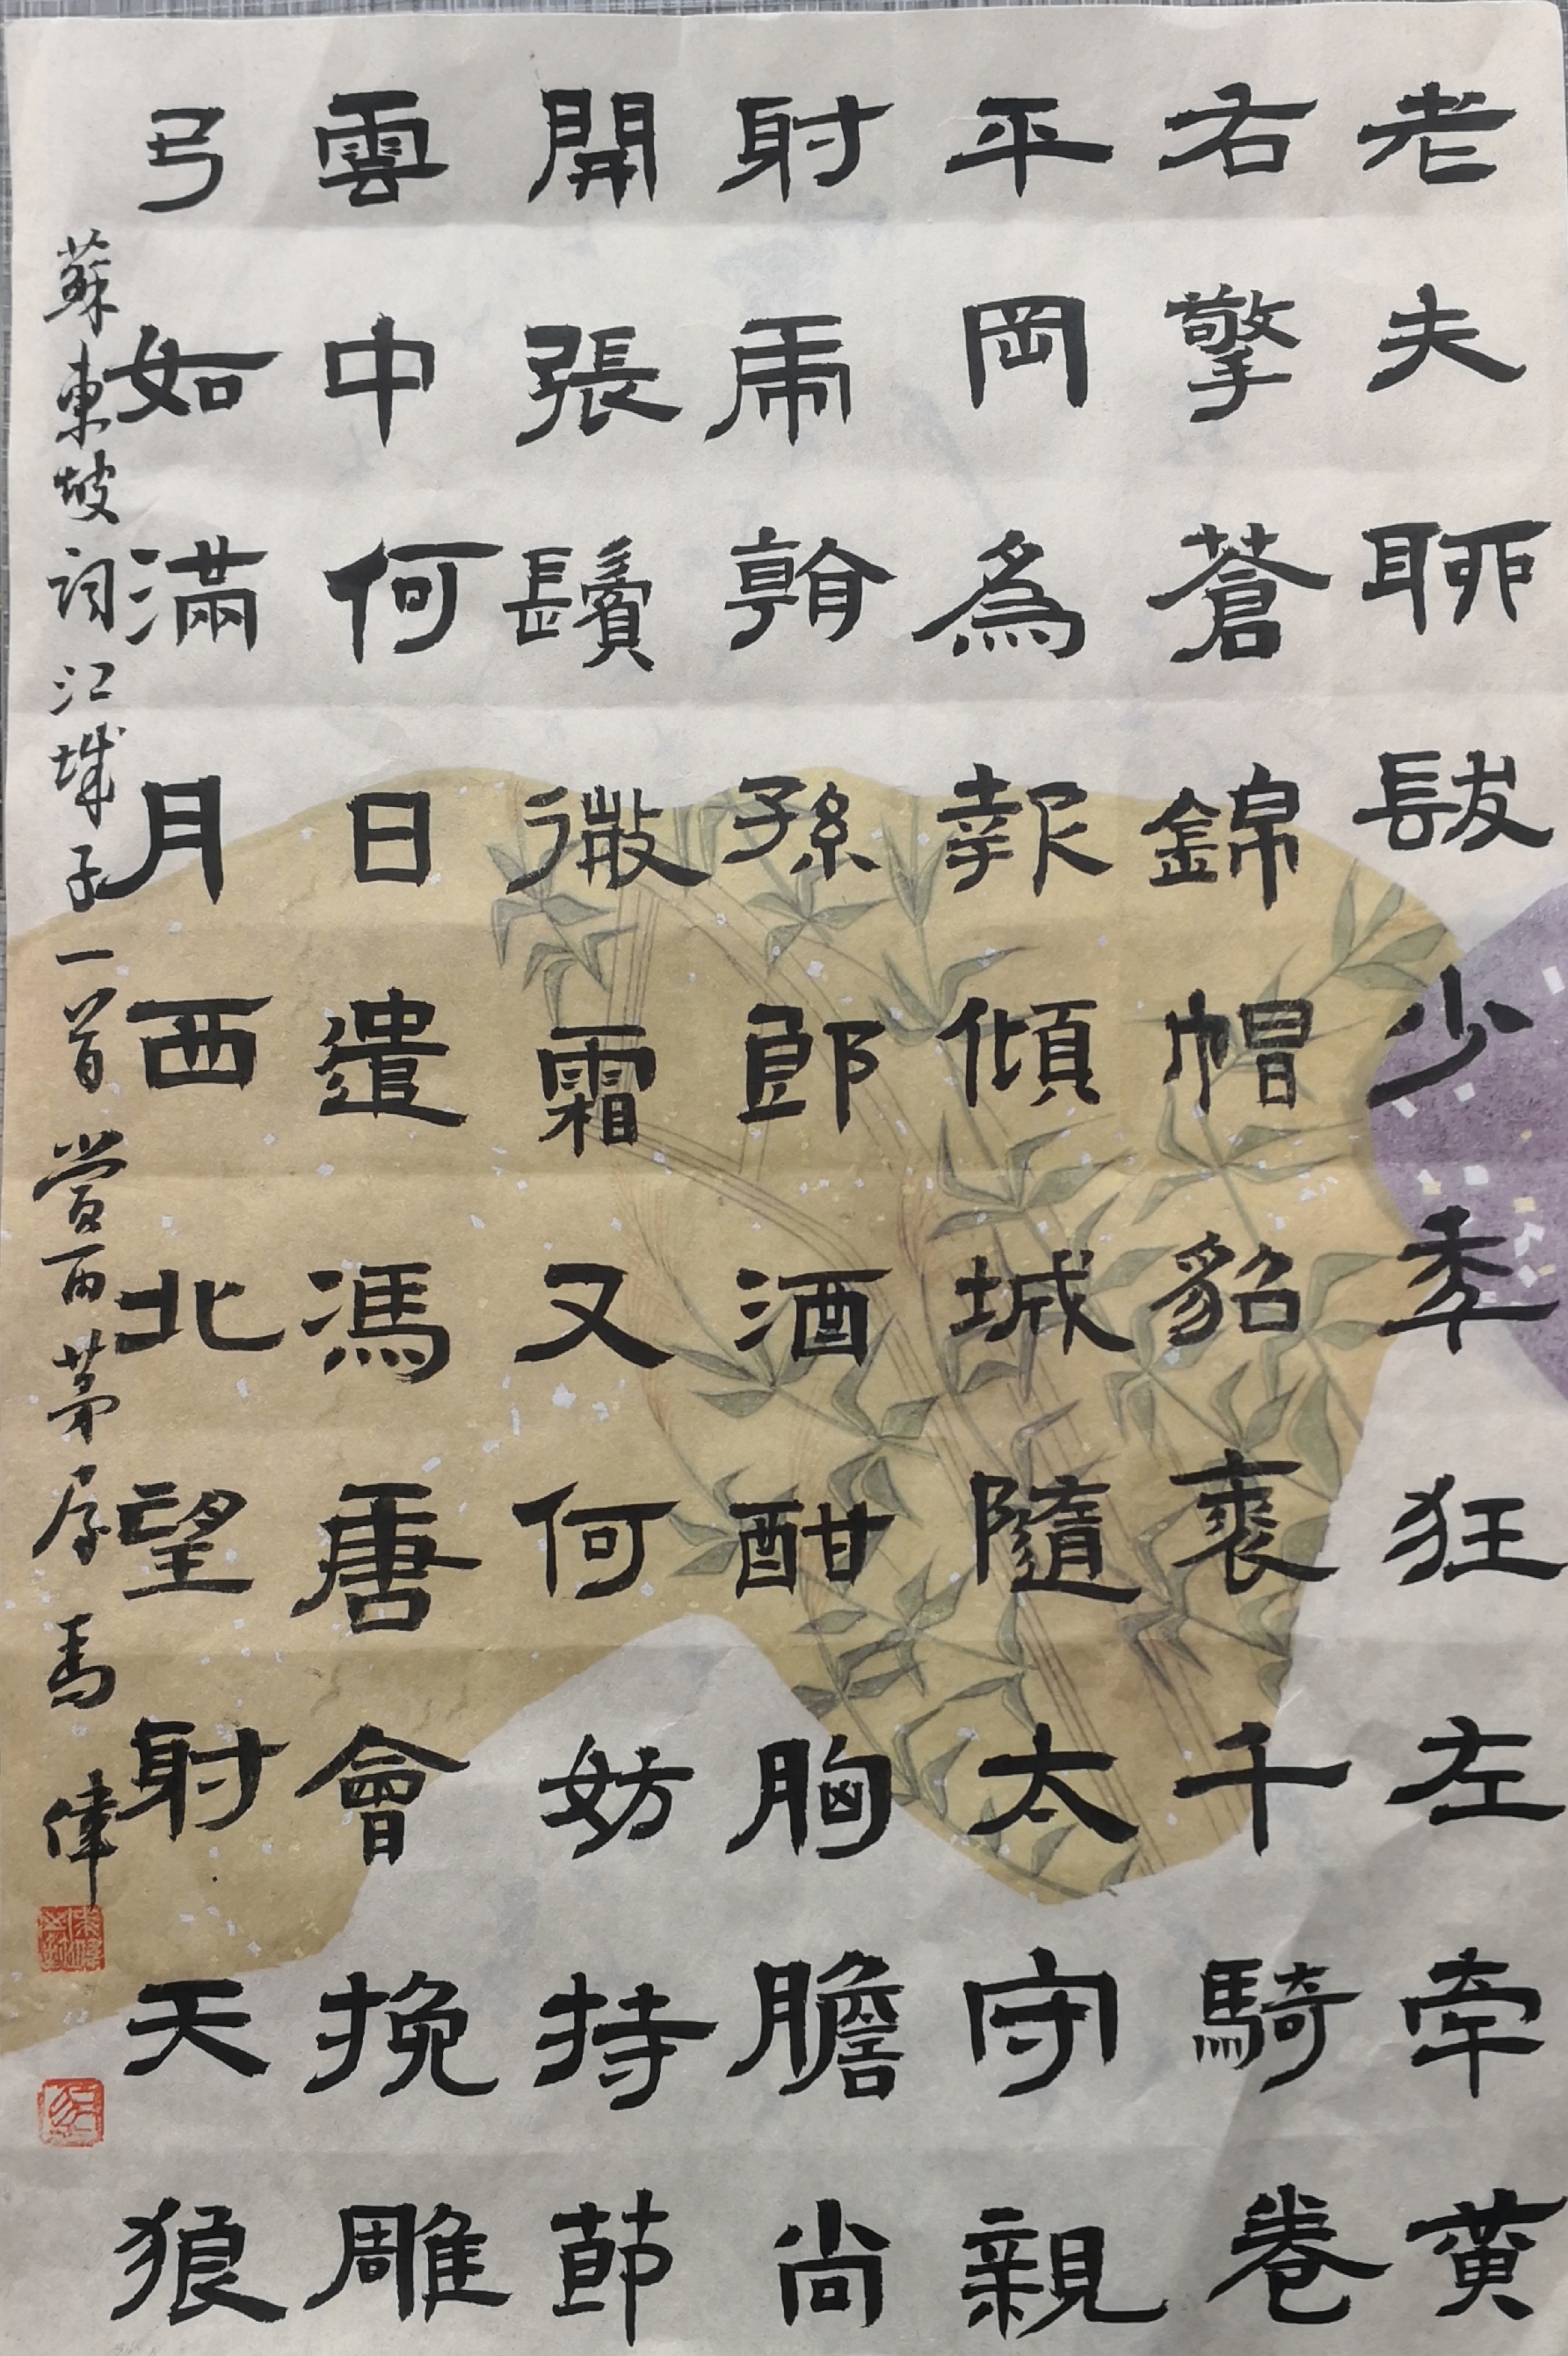 老夫聊髮少秊狂左牽黄
右擎蒼錦帽貂裘千騎卷
平岡爲報傾城隨太守親
射虎看孫郎酒酣胸膽尚
開張鬢微霜又何妨持節
雲中何日遣馮唐會挽雕
弓如滿月西北望射天狼
蘇東坡詞江城子一首營西茅屋馬偉